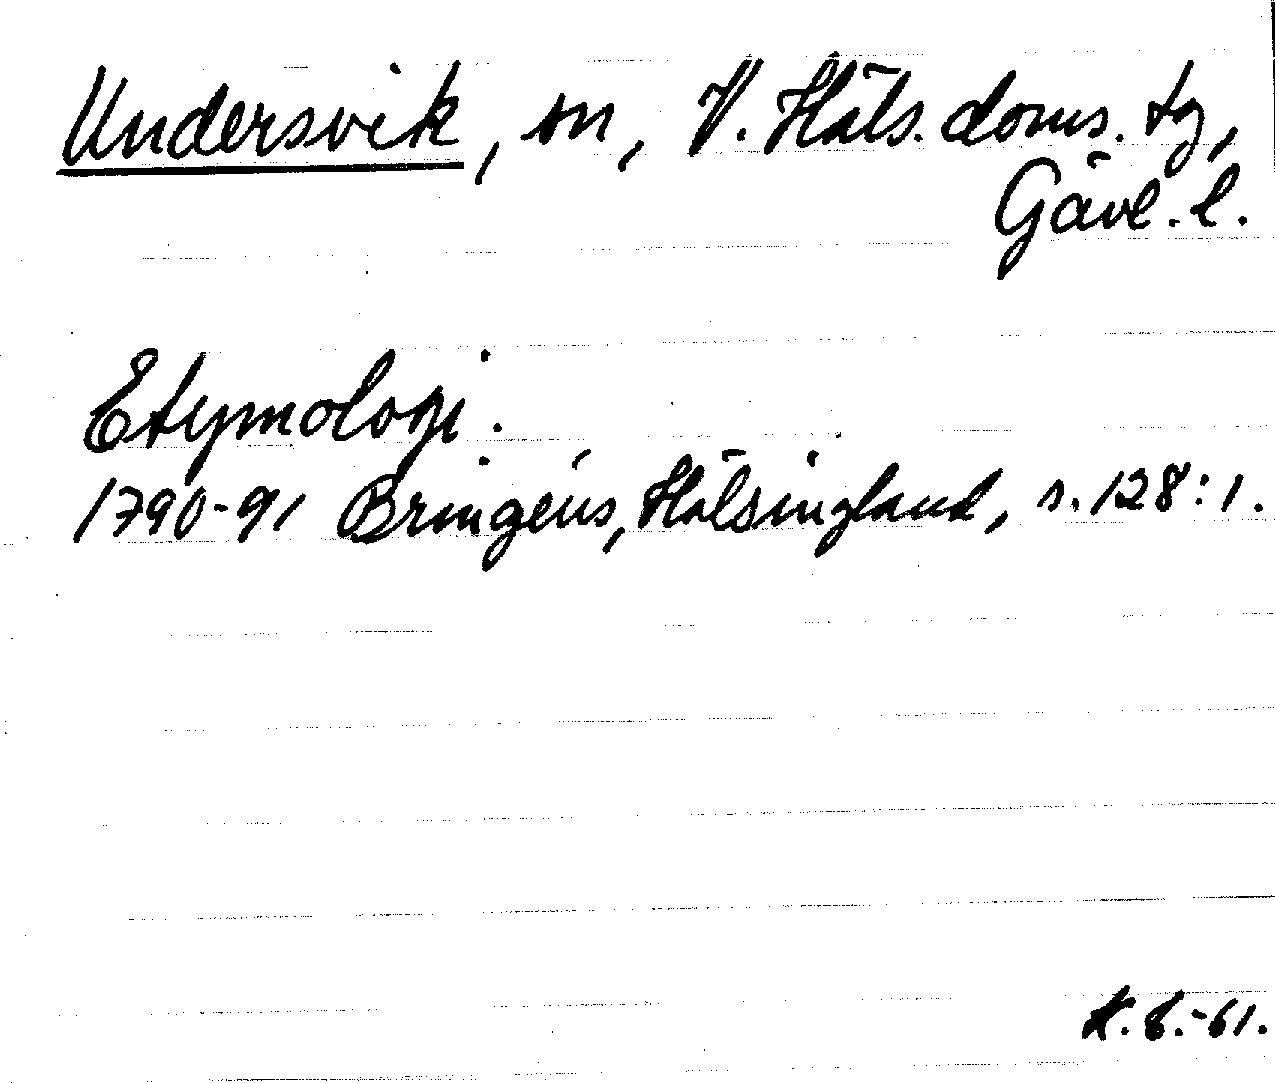 Undersvik, sn, V. Häls. doms. tg,
Gävl. l.
Etymologi.
1790-91 Bringéus, Hälsingland, s. 128:1.
-61.